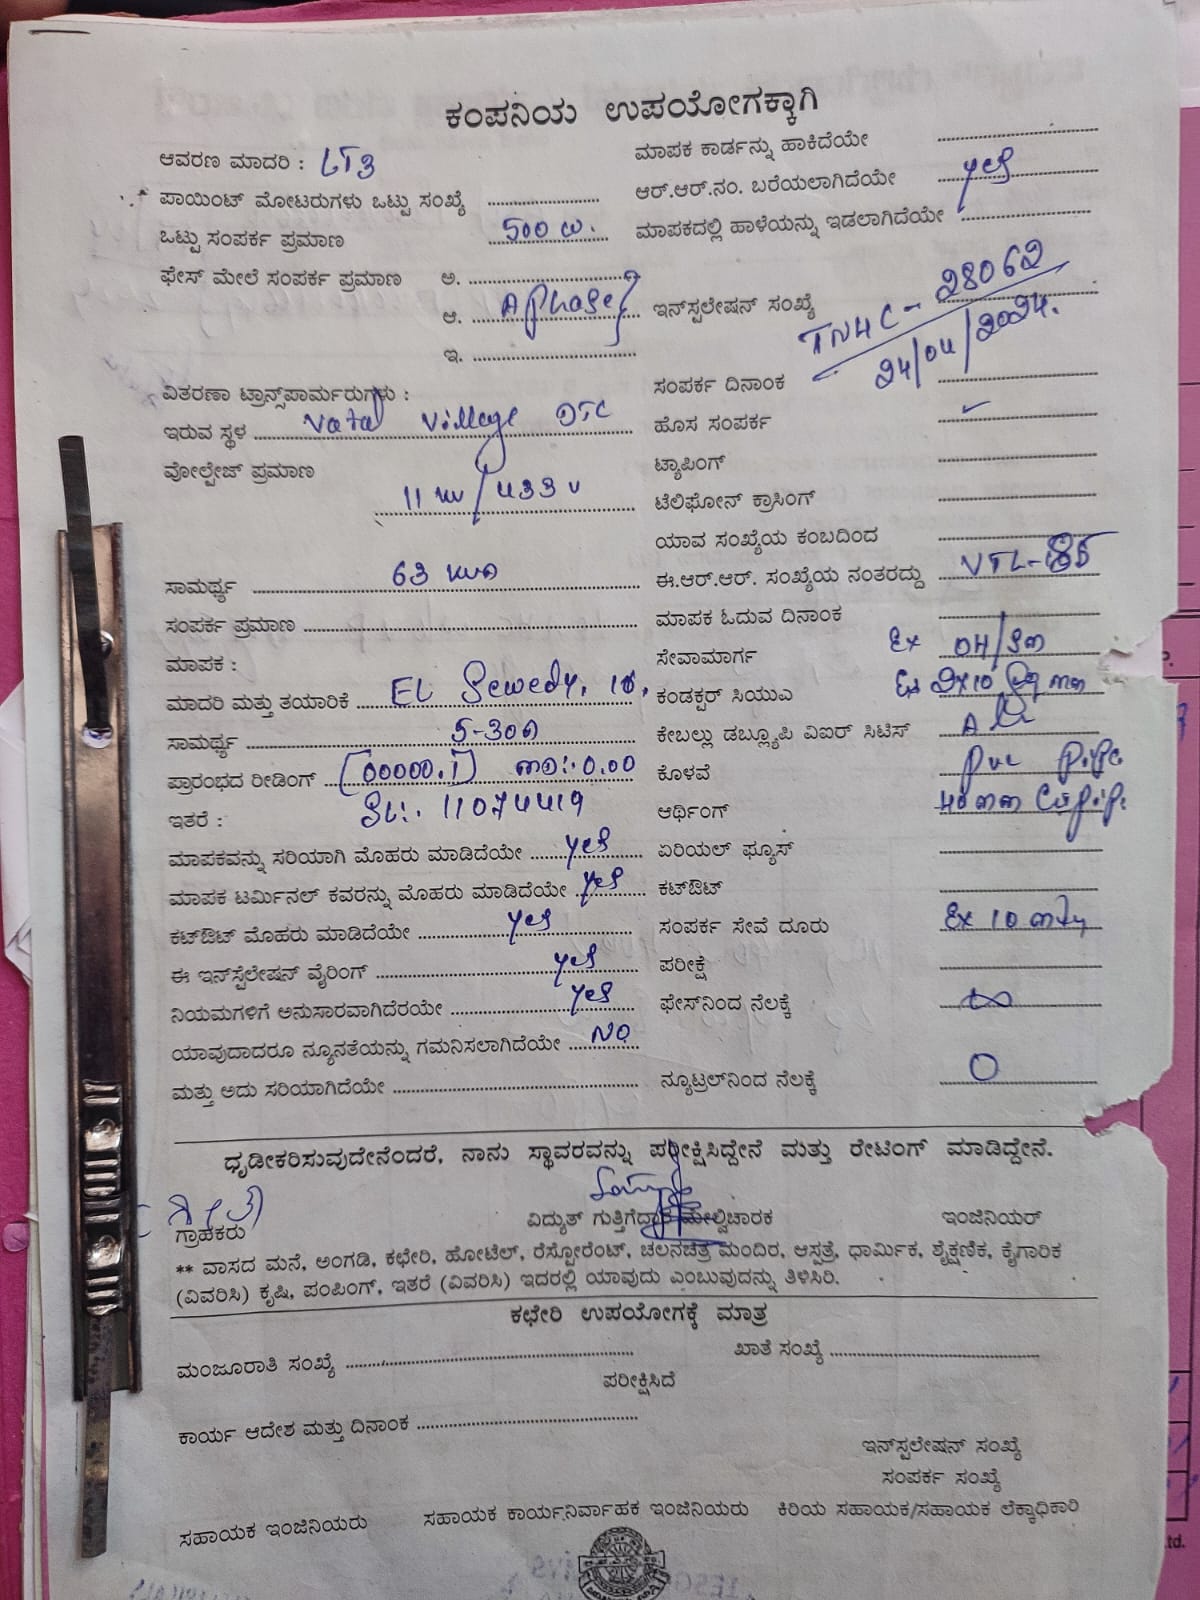 ಕಂಪನಿಯ ಉಪಯೋಗಕ್ಕಾಗಿ
ಆವರಣ ಮಾದರಿ : LT3
ಮಾಪಕ ಕಾರ್ಡನ್ನು ಹಾಕಿದೆಯೇ
ಪಾಯಿಂಟ್ ಮೋಟರುಗಳು ಒಟ್ಟು ಸಂಖ್ಯೆ
ಆರ್.ಆರ್.ನಂ. ಬರೆಯಲಾಗಿದೆಯೇ yes
ಒಟ್ಟು ಸಂಪರ್ಕ ಪ್ರಮಾಣ 500 W.
ಮಾಪಕದಲ್ಲಿ ಹಾಳೆಯನ್ನು ಇಡಲಾಗಿದೆಯೇ
ಫೇಸ್ ಮೇಲೆ ಸಂಪರ್ಕ ಪ್ರಮಾಣ ಅ.
ಆ. A Phase
ಇನ್‌ಸ್ಟಲೇಷನ್ ಸಂಖ್ಯೆ TNHC - 28062
24/04/2024.
ಇ.
ವಿತರಣಾ ಟ್ರಾನ್ಸ್‌ಪಾರ್ಮರುಗಳು :
ಸಂಪರ್ಕ ದಿನಾಂಕ
ಇರುವ ಸ್ಥಳ Vatal Village DTC
ಹೊಸ ಸಂಪರ್ಕ ✓
ವೋಲ್ಟೇಜ್ ಪ್ರಮಾಣ 11 kv / 433 v
ಟ್ಯಾಪಿಂಗ್
ಟೆಲಿಫೋನ್ ಕ್ರಾಸಿಂಗ್
ಯಾವ ಸಂಖ್ಯೆಯ ಕಂಬದಿಂದ
ಸಾಮರ್ಥ್ಯ 63 kva
ಈ.ಆರ್.ಆರ್. ಸಂಖ್ಯೆಯ ನಂತರದ್ದು VTL-
ಸಂಪರ್ಕ ಪ್ರಮಾಣ
ಮಾಪಕ ಓದುವ ದಿನಾಂಕ
ಮಾಪಕ :
ಸೇವಾಮಾರ್ಗ Ex OH/Sm
ಮಾದರಿ ಮತ್ತು ತಯಾರಿಕೆ EL Sewedy,
ಕಂಡಕ್ಟರ್ ಸಿಯುಎ Ex 2x10 Sq mm
ಸಾಮರ್ಥ್ಯ 5-30A
ಕೇಬಲ್ಲು ಡಬ್ಲ್ಯೂಪಿ ವಿಐಆರ್ ಸಿಟಿಸ್
ಪ್ರಾರಂಭದ ರೀಡಿಂಗ್ [00000.1] MD:- 0.00
ಕೊಳವೆ Pvc Pipe
ಇತರೆ : SL:. 11074419
ಆರ್ಥಿಂಗ್ 40 mm
ಮಾಪಕವನ್ನು ಸರಿಯಾಗಿ ಮೊಹರು ಮಾಡಿದೆಯೇ yes
ಏರಿಯಲ್ ಫ್ಯೂಸ್
ಮಾಪಕ ಟರ್ಮಿನಲ್ ಕವರನ್ನು ಮೊಹರು ಮಾಡಿದೆಯೇ yes
ಕಟ್‌ಔಟ್
ಕಟ್‌ಔಟ್ ಮೊಹರು ಮಾಡಿದೆಯೇ yes
ಸಂಪರ್ಕ ಸೇವೆ ದೂರು Ex 10 mts
ಈ ಇನ್‌ಸ್ಟಲೇಷನ್ ವೈರಿಂಗ್ yes
ಪರೀಕ್ಷೆ
ನಿಯಮಗಳಿಗೆ ಅನುಸಾರವಾಗಿದೆರಯೇ yes
ಫೇಸ್‌ನಿಂದ ನೆಲಕ್ಕೆ ∞
ಯಾವುದಾದರೂ ನ್ಯೂನತೆಯನ್ನು ಗಮನಿಸಲಾಗಿದೆಯೇ NO
ಮತ್ತು ಅದು ಸರಿಯಾಗಿದೆಯೇ
ನ್ಯೂಟ್ರಲ್‌ನಿಂದ ನೆಲಕ್ಕೆ 0
ಧೃಡೀಕರಿಸುವುದೇನೆಂದರೆ, ನಾನು ಸ್ಥಾವರವನ್ನು ಪರೀಕ್ಷಿಸಿದ್ದೇನೆ ಮತ್ತು ರೇಟಿಂಗ್ ಮಾಡಿದ್ದೇನೆ.
ಗ್ರಾಹಕರು
ವಿದ್ಯುತ್ ಗುತ್ತಿಗೆದ್ದಾರ ಮೇಲ್ವಿಚಾರಕ
ಇಂಜಿನಿಯರ್
** ವಾಸದ ಮನೆ, ಅಂಗಡಿ, ಕಛೇರಿ, ಹೋಟೆಲ್, ರೆಸ್ಟೋರೆಂಟ್, ಚಲನಚಿತ್ರ ಮಂದಿರ, ಆಸ್ಪತ್ರೆ, ಧಾರ್ಮಿಕ, ಶೈಕ್ಷಣಿಕ, ಕೈಗಾರಿಕ
(ವಿವರಿಸಿ) ಕೃಷಿ, ಪಂಪಿಂಗ್, ಇತರೆ (ವಿವರಿಸಿ) ಇದರಲ್ಲಿ ಯಾವುದು ಎಂಬುವುದನ್ನು ತಿಳಿಸಿರಿ.
ಕಛೇರಿ ಉಪಯೋಗಕ್ಕೆ ಮಾತ್ರ
ಮಂಜೂರಾತಿ ಸಂಖ್ಯೆ
ಖಾತೆ ಸಂಖ್ಯೆ
ಪರೀಕ್ಷಿಸಿದೆ
ಕಾರ್ಯ ಆದೇಶ ಮತ್ತು ದಿನಾಂಕ
ಇನ್‌ಸ್ಟಲೇಷನ್ ಸಂಖ್ಯೆ
ಸಂಪರ್ಕ ಸಂಖ್ಯೆ
ಸಹಾಯಕ ಇಂಜಿನಿಯರು
ಸಹಾಯಕ ಕಾರ್ಯನಿರ್ವಾಹಕ ಇಂಜಿನಿಯರು
ಕಿರಿಯ ಸಹಾಯಕ/ಸಹಾಯಕ ಲೆಕ್ಕಾಧಿಕಾರಿ